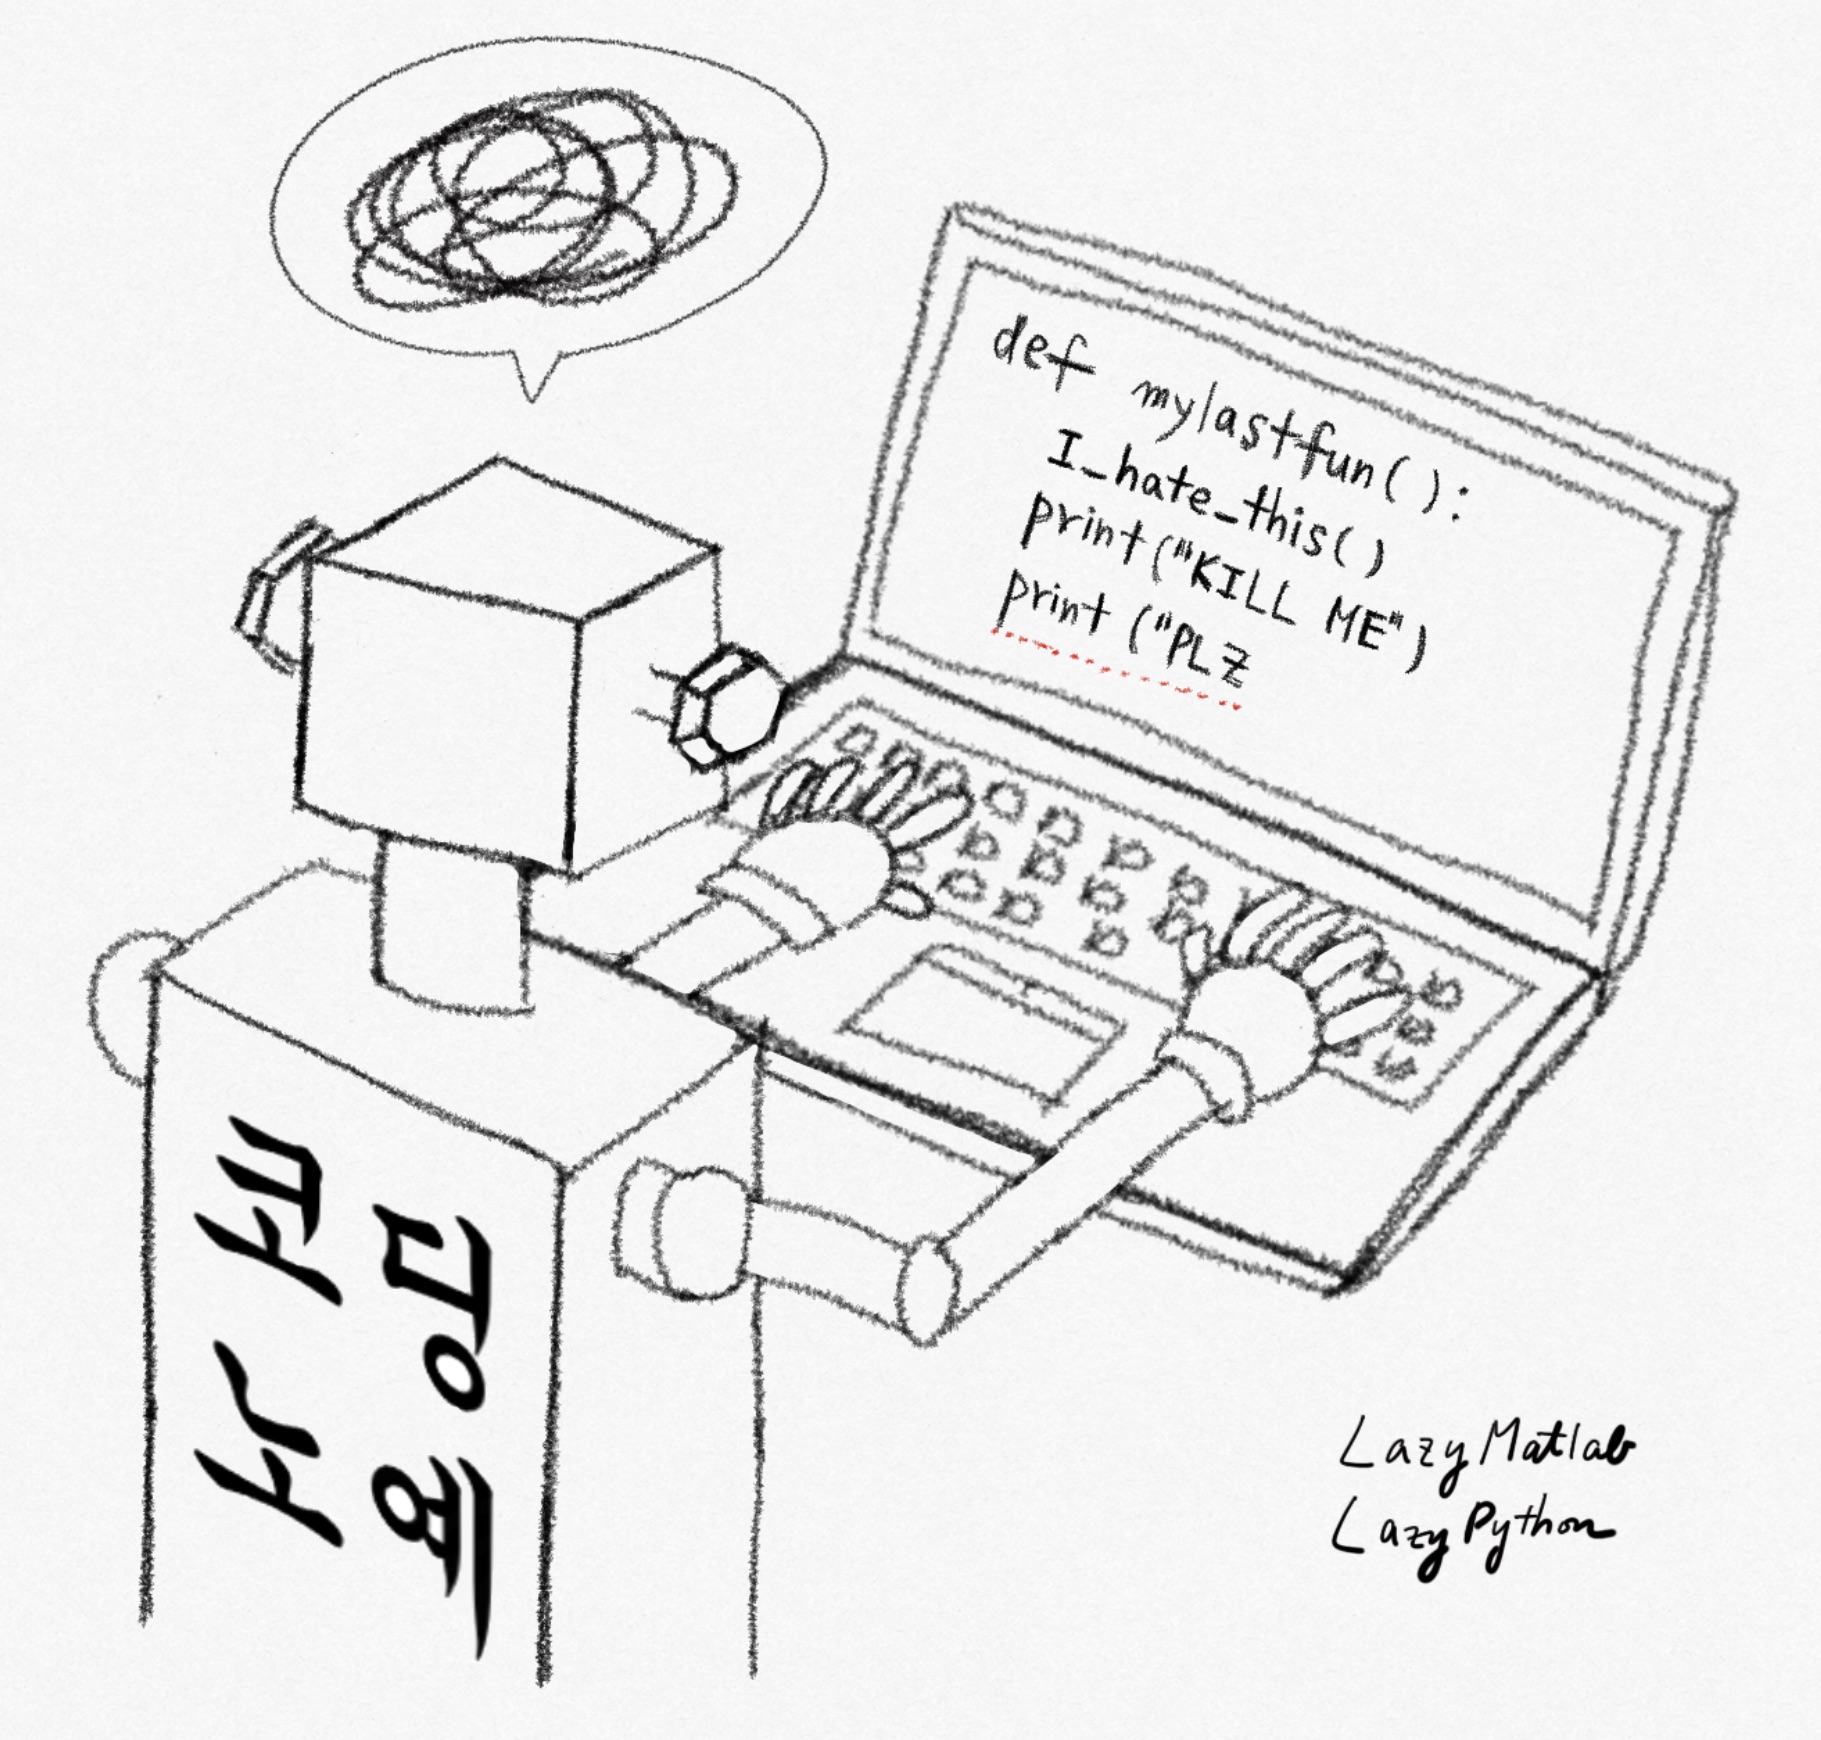 def mylastfun():
I_hate_this()
print("KILL ME")
print ("PLZ
코딩
노예
Lazy Matlab
Lazy Python